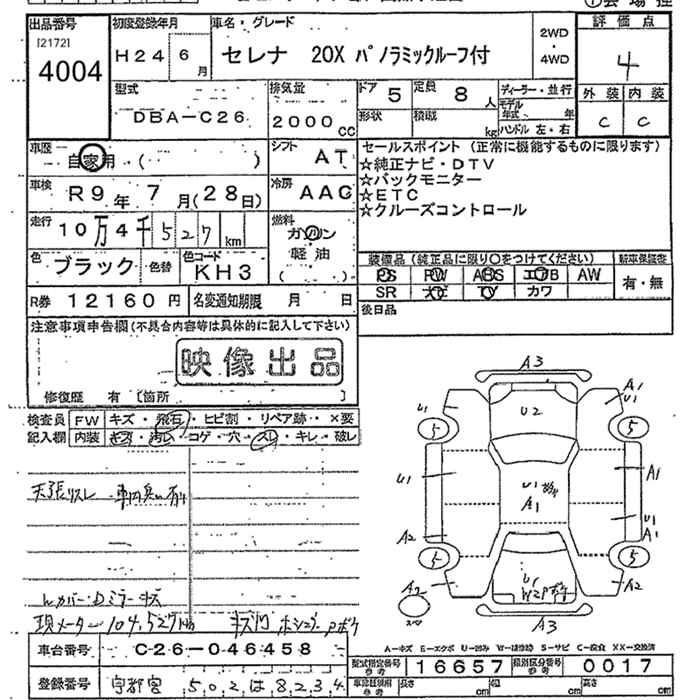 出品番号 初度登録年月 車名・グレード 2WD・4WD 評価点
[2172] 4004 H24 6月 セレナ 20X パノラミックルーフ付 4
型式 排気量 ドア 5 定員 8人 ディーラー・並行 外装 内装
DBA-C26 2000cc 形状 積載 kg モデル年式 年 ハンドル 左・右 C C
車歴 自家用 ( ) シフト AT セールスポイント (正常に機能するものに限ります)
☆純正ナビ・DTV
車検 R9年 7月(28日) 冷房 AAC ☆バックモニター
☆ETC
走行 10万4千527km 燃料 ガソリン ☆クルーズコントロール
軽油
( )
色 ブラック 色替 色コード KH3 装備品 (純正品に限り○をつけてください) 新車保証書
PS PW ABS エアB AW 有・無
R券 12160円 名変通知期限 月 日 SR ナビ TV カワ
注意事項申告欄(不具合内容等は具体的に記入して下さい) 後日品
映像出品
修復歴 有 [箇所 ]
検査員 FW キズ・飛石・ヒビ割・リペア跡・×要
記入欄 内装 キズ・汚れ・コゲ・穴・スレ・キレ・破レ
A3
U1 U2 A1 U1
5 5
U1 U1 A1
A1 U1 A1
A2 5 5
A2 U1 A2
A3
天張りスレ
Wカバー・Dミラーキズ
現メーター 104,527Km
A-キズ E-エクボ U-凹み W-補修跡 S-サビ C-腐食 XX-交換済
車台番号 C26-046458 型式指定番号 参考 16657 類別区分番号 参考 0017
登録番号 宇都宮 502は8234 車庫証明用 参考 長さ cm 幅 cm 高さ cm